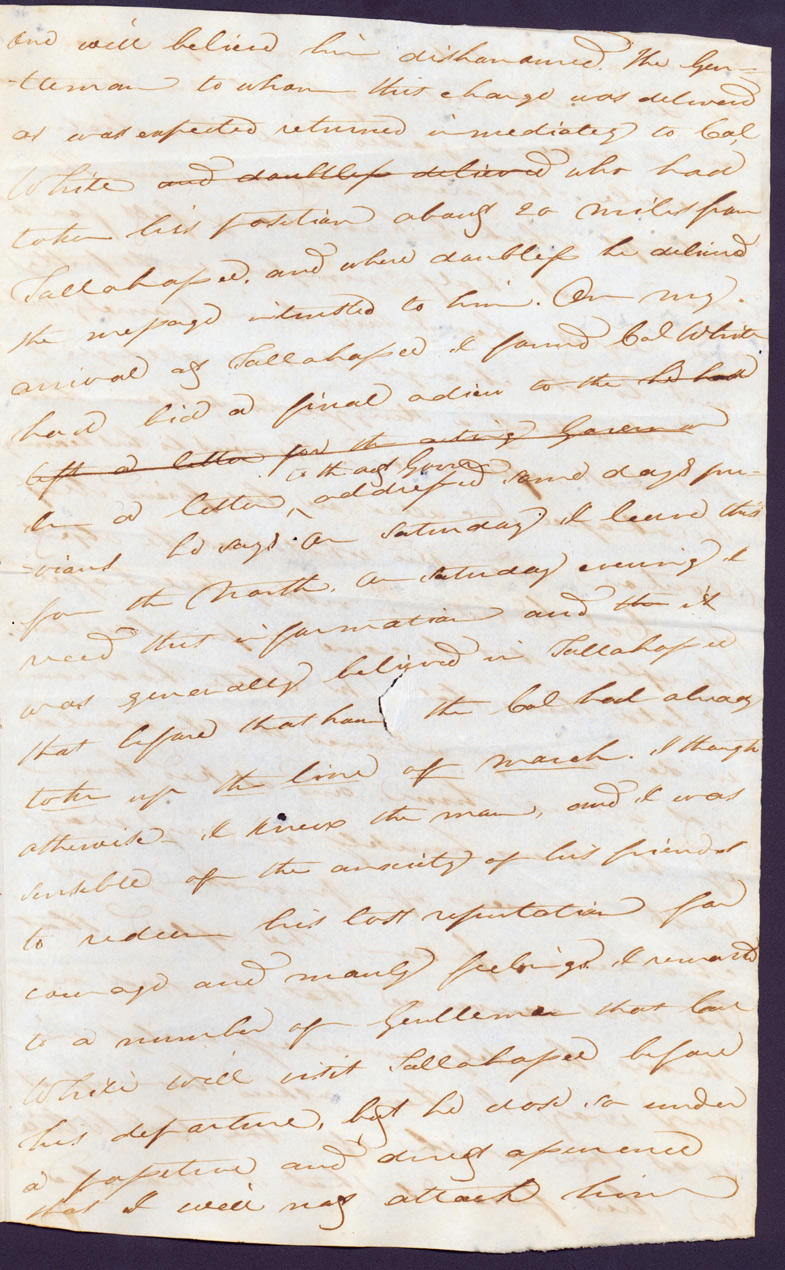 and will believe him dishonoured. The Gen-
-tleman to whom this charge was delivered
as was expected returned immediately to Col
White and doubtless delivered who had
taken his position about 20 miles from
Tallahassee, and where doubtless he delivered
the message intrusted to him. On my
arrival at Tallahassee I found Col White
had bid a final adieu to the he had
left a letter for the acting Governor
to the actg Govr
In a letter, addressed some days pre-
-vious he says On Saturday I leave this
for the North, On Saturday evening I
recd this information and tho it
was generally believed in Tallahassee
that before that hour the Col had already
taken up the line of march. I thought
otherwise I knew the man, and I was
sensible of the anxiety of his friends
to redeem his lost reputation for
courage and manly feelings. I remarked
to a number of Gentlemen that Col
White will visit Tallahassee before
his departure, but he does so under
a positive and direct assurance
that I will not attack him